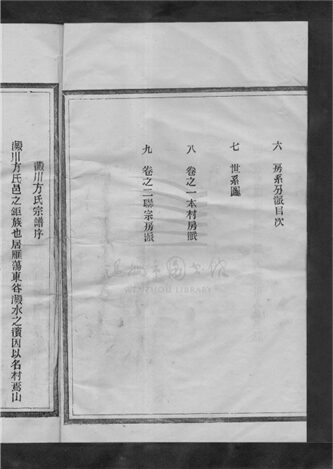 六 房系分派目次
七 世系圖
八 卷之一本村房派
九 卷之二聯宗房派
澱川方氏宗譜序
澱川方氏邑之鉅族也居雁蕩東谷澱水之濱因以名村焉山
WENZHOU LIBRARY